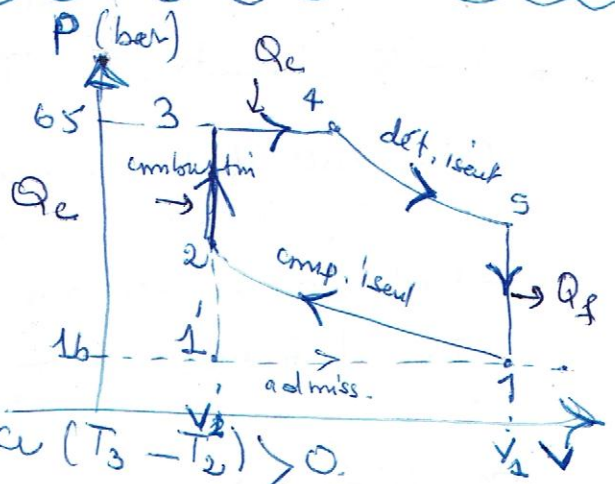 P (bar)
Qc
65 3 4
dét. isent
combustn
Qc
5
2
comp. isent
Qf
1b 1'
admiss. 1
V2 V1 V
(T3 – T2) > 0.